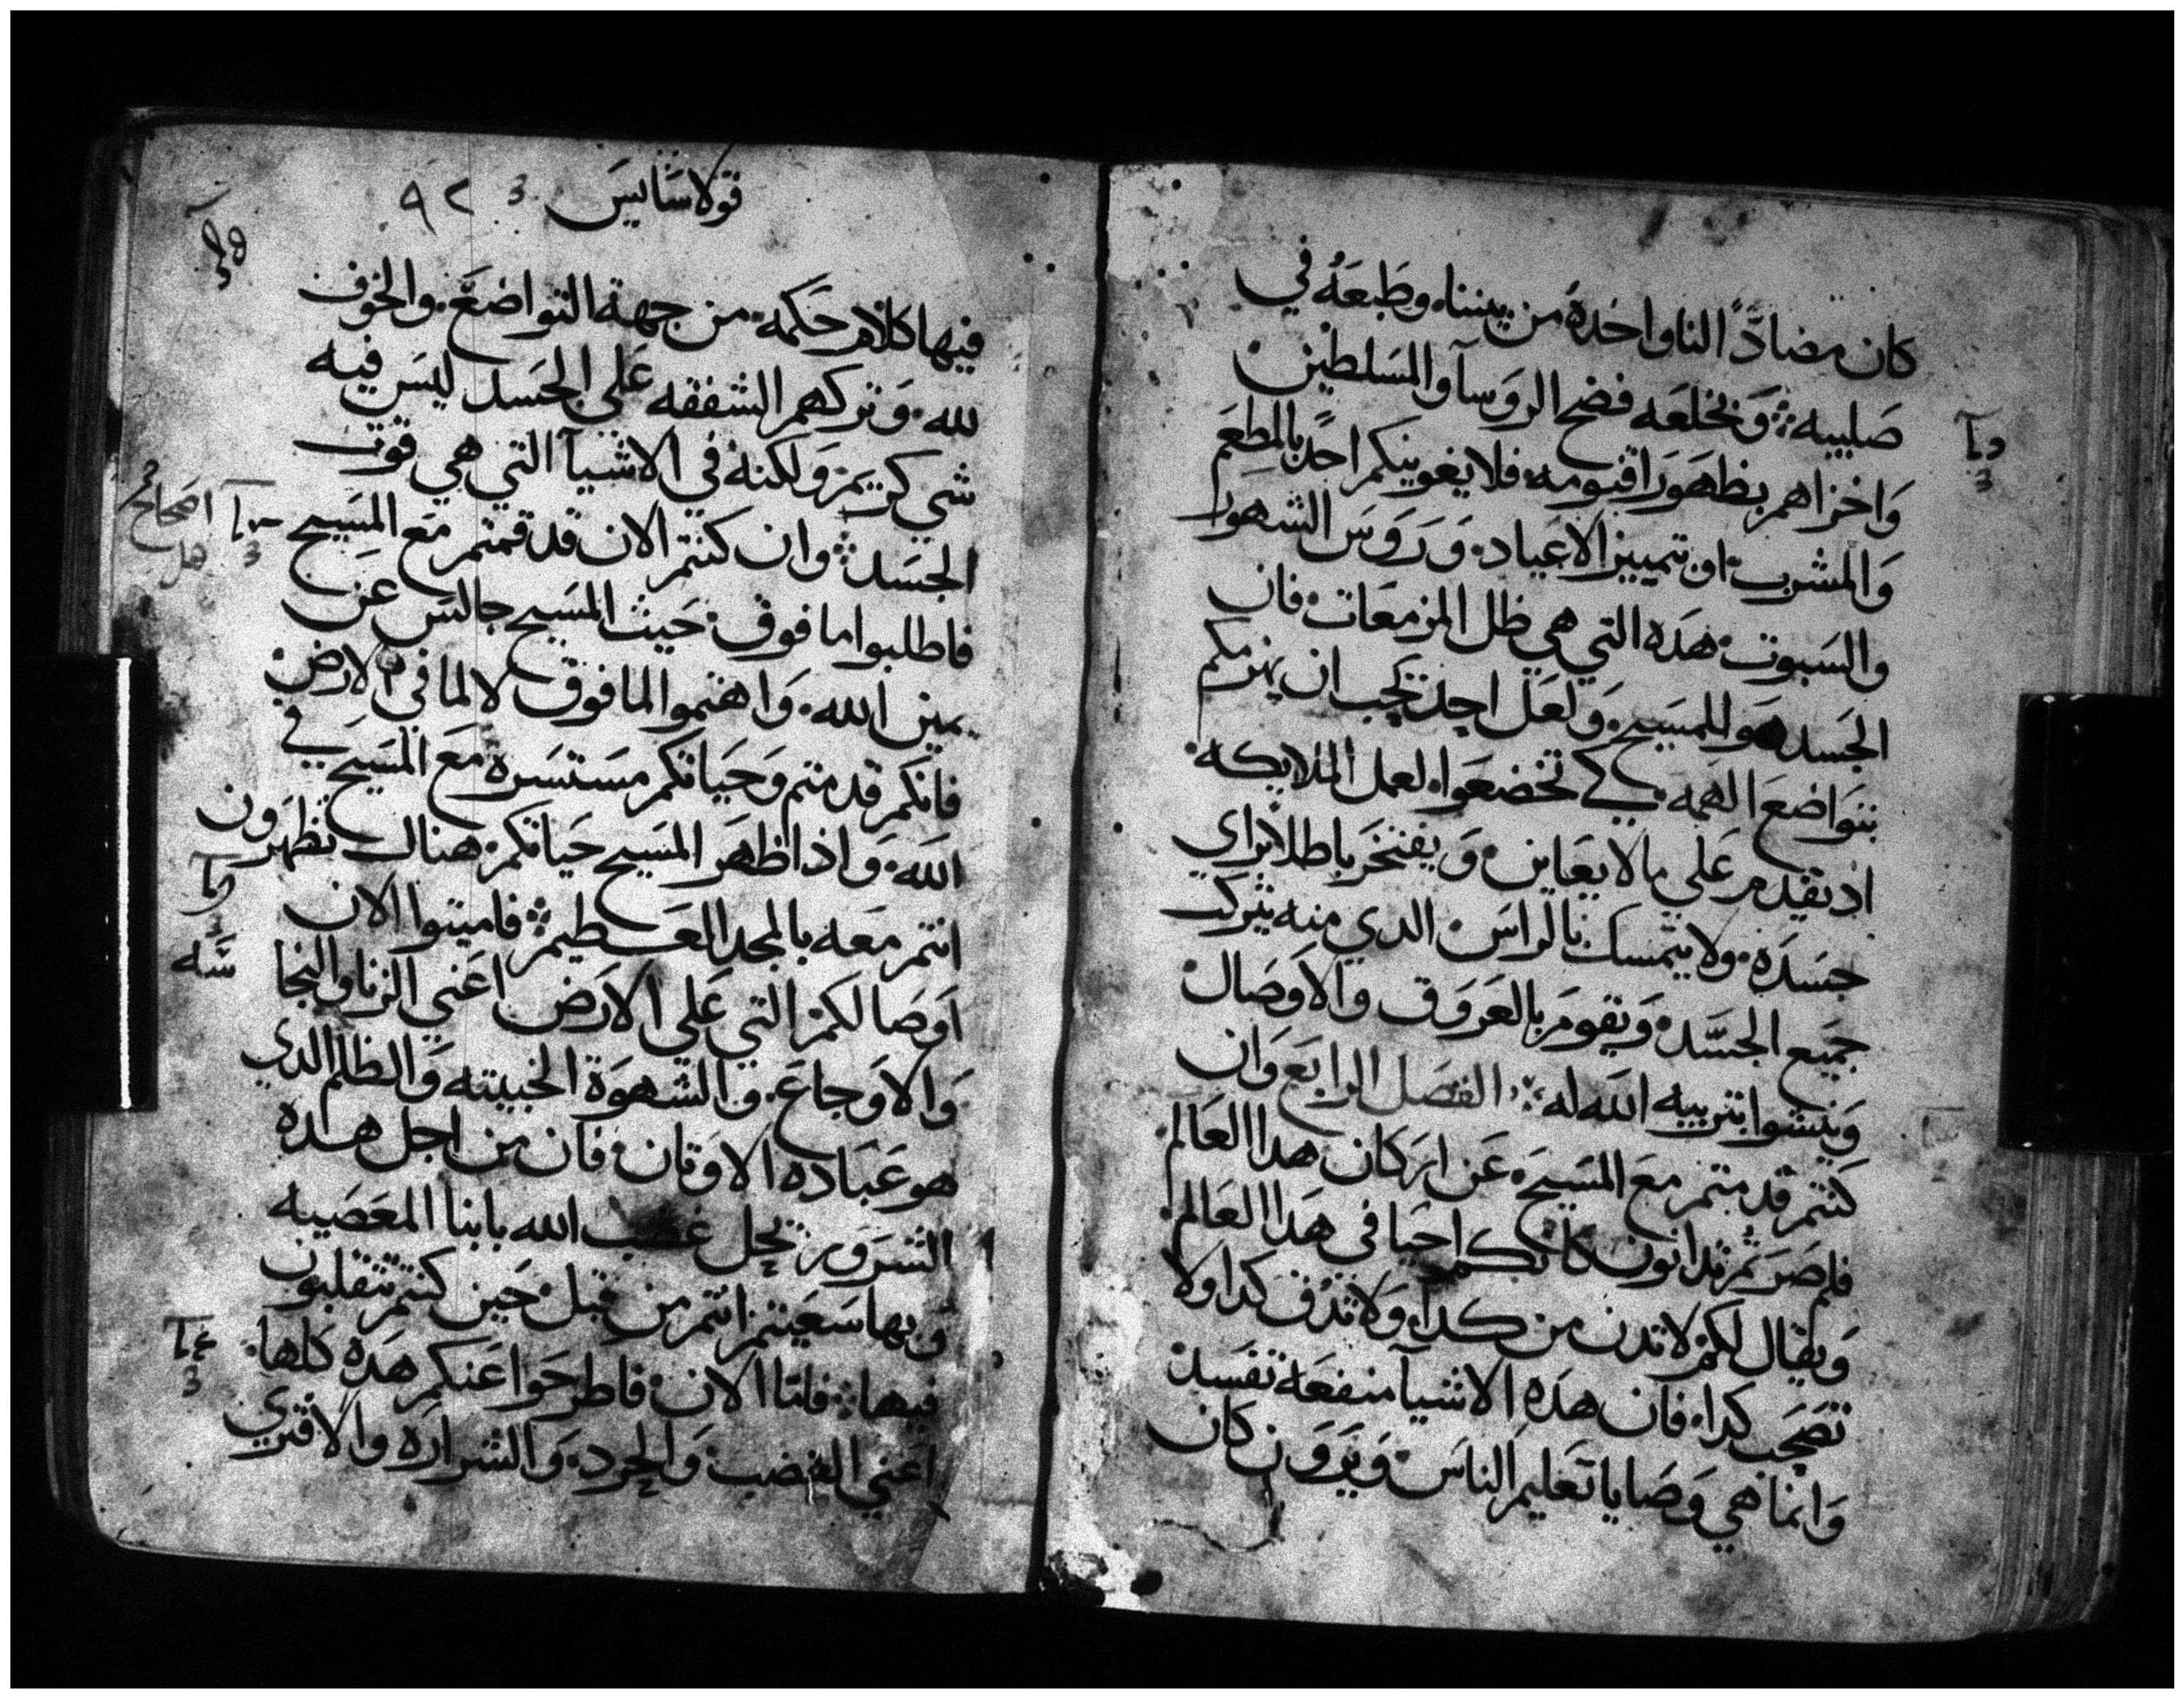 كان مضادًا لنا واخده من بيننا، وطبعه في
صليبه ܀ وبخلعه فضح الروسآ والمسلطين
واخزاهم بظهور اقنومه فلا يغوينكم احد بالمطعم
والمشرب، او تمييز الاعياد، وروس الشهور
والسبوت، هده التي هي ظل المزمعات، فان
الجسد هو للمسيح، ولعل احد يحب ان يهزمكم
بتواضع الهمه، كي تخضعوا، لعمل الملايكه،
اد يقدم على ما لا يعاين، ويفتخر باطلا براي
جسده، ولا يتمسك بالراس الدي منه يتركب
جميع الجسد، ويقوم بالعروق والاوصال
وينشوا بتربيه الله له ܀ الفصل الرابع وان
كنتم قد متم مع المسيح، عن اركان هدا العالم
فلم صرتم تدانون كانكم احيا في هدا العالم
ويقال لكم لا تدن من كدا، ولا تدق كدا ولا
تصحب كدا، فان هده الاشيآ منفعه تفسد
وانما هي وصايا تعليم الناس، ويرون كان
قولاسايس 3 ٩٢
فيها كلام حكمه، من جهة التواضع، والخوف
لله، وتركهم الشفقه على الجسد ليس فيه
شي كريم، ولكنه في الاشيآ التي هي قوت
الجسد ܀ وان كنتم الان قد قمتم مع المسيح
فاطلبوا ما فوق، حيث المسيح جالس عن
يمين الله، واهتموا لما فوق لا لما في الارض
فانكم قد متم وحياتكم مستسره مع المسيح في
الله، واذا ظهر المسيح حياتكم، هناك تظهرون
انتم معه بالمجد العظيم ܀ فاميتوا الان
اوصالكم التي على الارض اعني الزنا والنجا
سه
والاوجاع، والشهوة الخبيته والظلم الدي
هو عباده الاوتان، فان من اجل هده
الشرور يحل غضب الله بابنا المعصيه
وبها سعيتم انتم من قبل، حين كنتم تتقلبون
فيها ܀ فاما الان، فاطرحوا عنكم هده كلها،
اعني الغضب والحرد، والشراره والافتري
اصحاح